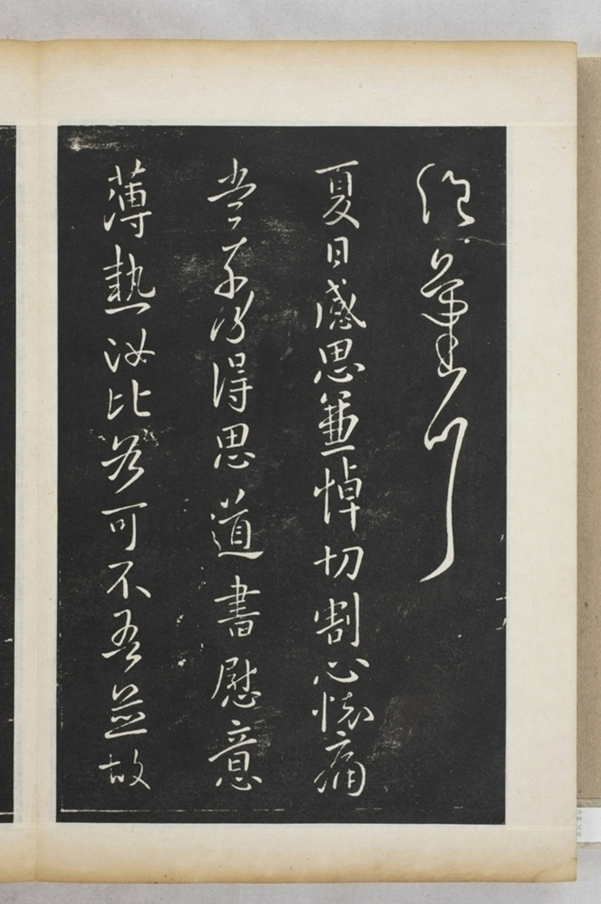 夏日感思兼悼切割心懷痛
當奈何得思道書慰意
薄熱汝比各可不吾並故